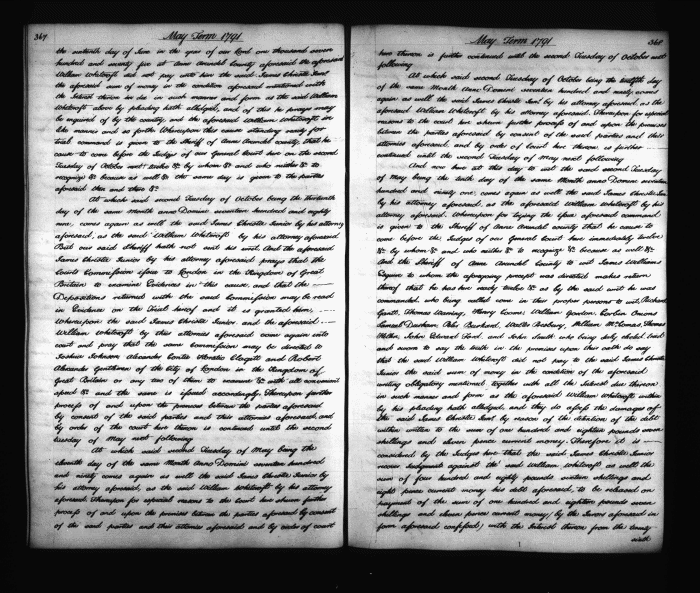 367
May Term 1791
the sixteenth day of June in the year of our Lord one thousand seven
hundred and seventy five at Anne Arundel County aforesaid the aforesaid
William Whitcroft did not pay unto him the said James Christie Junr
the aforesaid sum of money in the condition aforesaid mentioned with
the Interest thereon in such manner and form as the said William
Whitcroft above by pleading hath alledged, and of this he prays may
be inquired of by the country and the aforesaid William Whitcroft in
like manner and so forth Whereupon this cause standing ready for
trial command is given to the Sheriff of Anne Arundel county, that he
cause to come before the Judges of our General Court here on the second
Tuesday of October next twelve &c by whom &c and who neither &c to
recognize &c because as well &c the same day is given to the parties
aforesaid then and there &c
At which said second Tuesday of October being the thirteenth
day of the same month anno Domini seventeen hundred and eighty
nine, comes again as well the said James Christie Junior by his attorney
aforesaid, as the said William Whitcroft by his attorney aforesaid
But our said Sheriff hath not sent his writ. And the aforesaid
James Christie Junior by his attorney aforesaid prays that the
Courts Commission issue to London in the Kingdom of Great
Britain to examine Evidences in this cause, and that the
Depositions returned with the said Commission may be read
in Evidence on the Trial hereof and it is granted him,
Whereupon the said James Christie Junior and the aforesaid
William Whitcroft by their attornies aforesaid come again into
court and pray that the same commission may be directed to
Joshua Johnson Alexander Contee Horatio Clagett and Robert
Alexander of the City of London in the Kingdom of
Great Britain or any two of them to examine &c with all convenient
speed &c and the same is issued accordingly. Thereupon further
process of and upon the premises between the parties aforesaid
by consent of the said parties and their attornies aforesaid, and
by order of the court here thereon is continued until the second
tuesday of May next following
At which said second Tuesday of May being the
eleventh day of the same Month Anno Domini seventeen hundred
and ninety comes again as well the said James Christie Junior by
his attorney aforesaid, as the said William Whitcroft by his attorney
aforesaid Thereupon for especial reasons to the Court here shewn further
process of and upon the premises between the parties aforesaid by consent
of the said parties and their attornies aforesaid and by order of court
May Term 1791
368
here thereon is further continued until the second Tuesday of October next
following
At which said second Tuesday of October being the twelfth day
of the same Month Anno Domini seventeen hundred and ninety comes
again as well the said James Christie Junr by his attorney aforesaid, as the
aforesaid William Whitcroft by his attorney aforesaid. Thereupon for especial
reasons to the court here shewn further process of and upon the premises
between the parties aforesaid by consent of the said parties and their
attornies aforesaid, and by order of court here thereon is further
continued until the second Tuesday of May next following
And now here at this day to wit the said second Tuesday
of May being the tenth day of the same Month Anno Domini seventeen
hundred and ninety one, comes again as well the said James Christie Junr
by his attorney aforesaid, as the aforesaid William Whitcroft by his
attorney aforesaid. Whereupon for trying the issue aforesaid command
is given to the Sheriff of Anne Arundel county that he cause to
come before the Judges of our General Court here immediately twelve
&c by whom &c and who neither &c to recognize &c because as well &c
And the Sheriff of Anne Arundel County to wit James Williams
Esquire to whom the aforegoing precept was directed makes return
thereof that he has here ready twelve &c as by the said writ he was
commanded who being called come in their proper persons to wit, Richard
Gantt, Thomas Waring, Henry Coome, William Gordon, Corban Omons
Samuel Durham Peter Burkard, Walles Bosbury, William McThomas, Thomas
John Edward Ford, and John Smith who being duly elected tried
and sworn to say the truth in the premises upon their oath do say
that the said William Whitcroft did not pay to the said James Christie
Junior the said sum of money in the condition of the aforesaid
writing obligatory mentioned, together with all the Interest due thereon
in such manner and form as the aforesaid William Whitcroft within
by his pleading hath alledged; and they do assess the damages of
the said James Christie Junr by reason of the detention of the debt
within written to the sum of one hundred and eighteen pounds seven
shillings and eleven pence current money. Therefore it is
considered by the Judges here that the said James Christie Junior
recover Judgment against the said William Whitcroft as well the
sum of four hundred and eighty pounds sixteen shillings and
eight pence current money his debt aforesaid, to be released on
payment of the sum of one hundred and eighteen pounds seven
shillings and eleven pence current money, by the Jurors aforesaid in
form aforesaid assessed, with the Interest thereon from the twenty
sixth